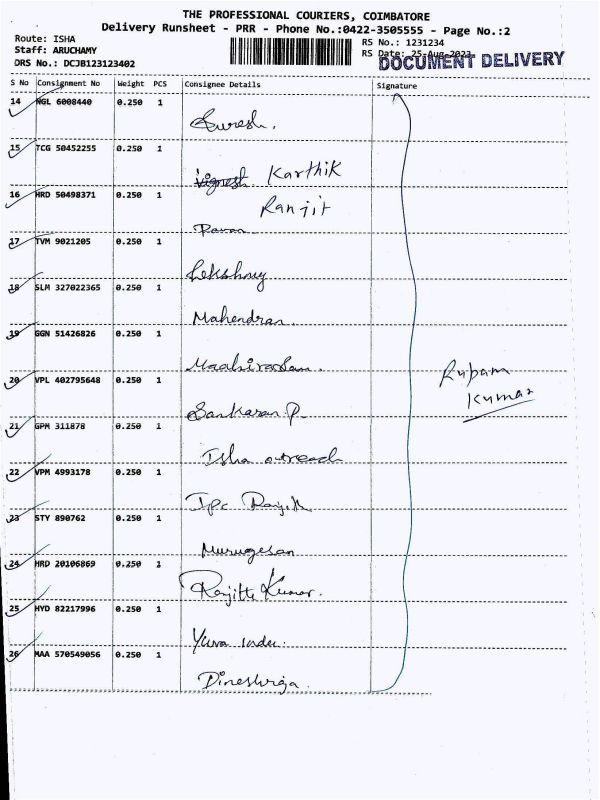 THE PROFESSIONAL COURIERS, COIMBATORE
Delivery Runsheet - PRR - Phone No.:0422-3505555 - Page No.:2
Route: ISHA
Staff: ARUCHAMY
DRS No.: DCJB123123402
RS No.: 1231234
RS Date: 25-Aug-2023
DOCUMENT DELIVERY
S No Consignment No Weight PCS Consignee Details Signature
14 NGL 6008440 0.250 1
Suresh.
15 TCG 50452255 0.250 1
Vignesh Karthik
16 HRD 50498371 0.250 1
Ranjit
Pavan
17 TVM 9021205 0.250 1
Lekshmy
18 SLM 327022365 0.250 1
Mahendran.
19 GGN 51426826 0.250 1
20 VPL 402795648 0.250 1
Sankaran P.
Rupam
Kumar
21 GPM 311878 0.250 1
Isha outreach
22 VPM 4993178 0.250 1
Ipc Ranjith
23 STY 890762 0.250 1
Murugesan
24 HRD 20106869 0.250 1
Ranjith Kumar.
25 HYD 82217996 0.250 1
Yuva
26 MAA 570549056 0.250 1
Dineshraja.